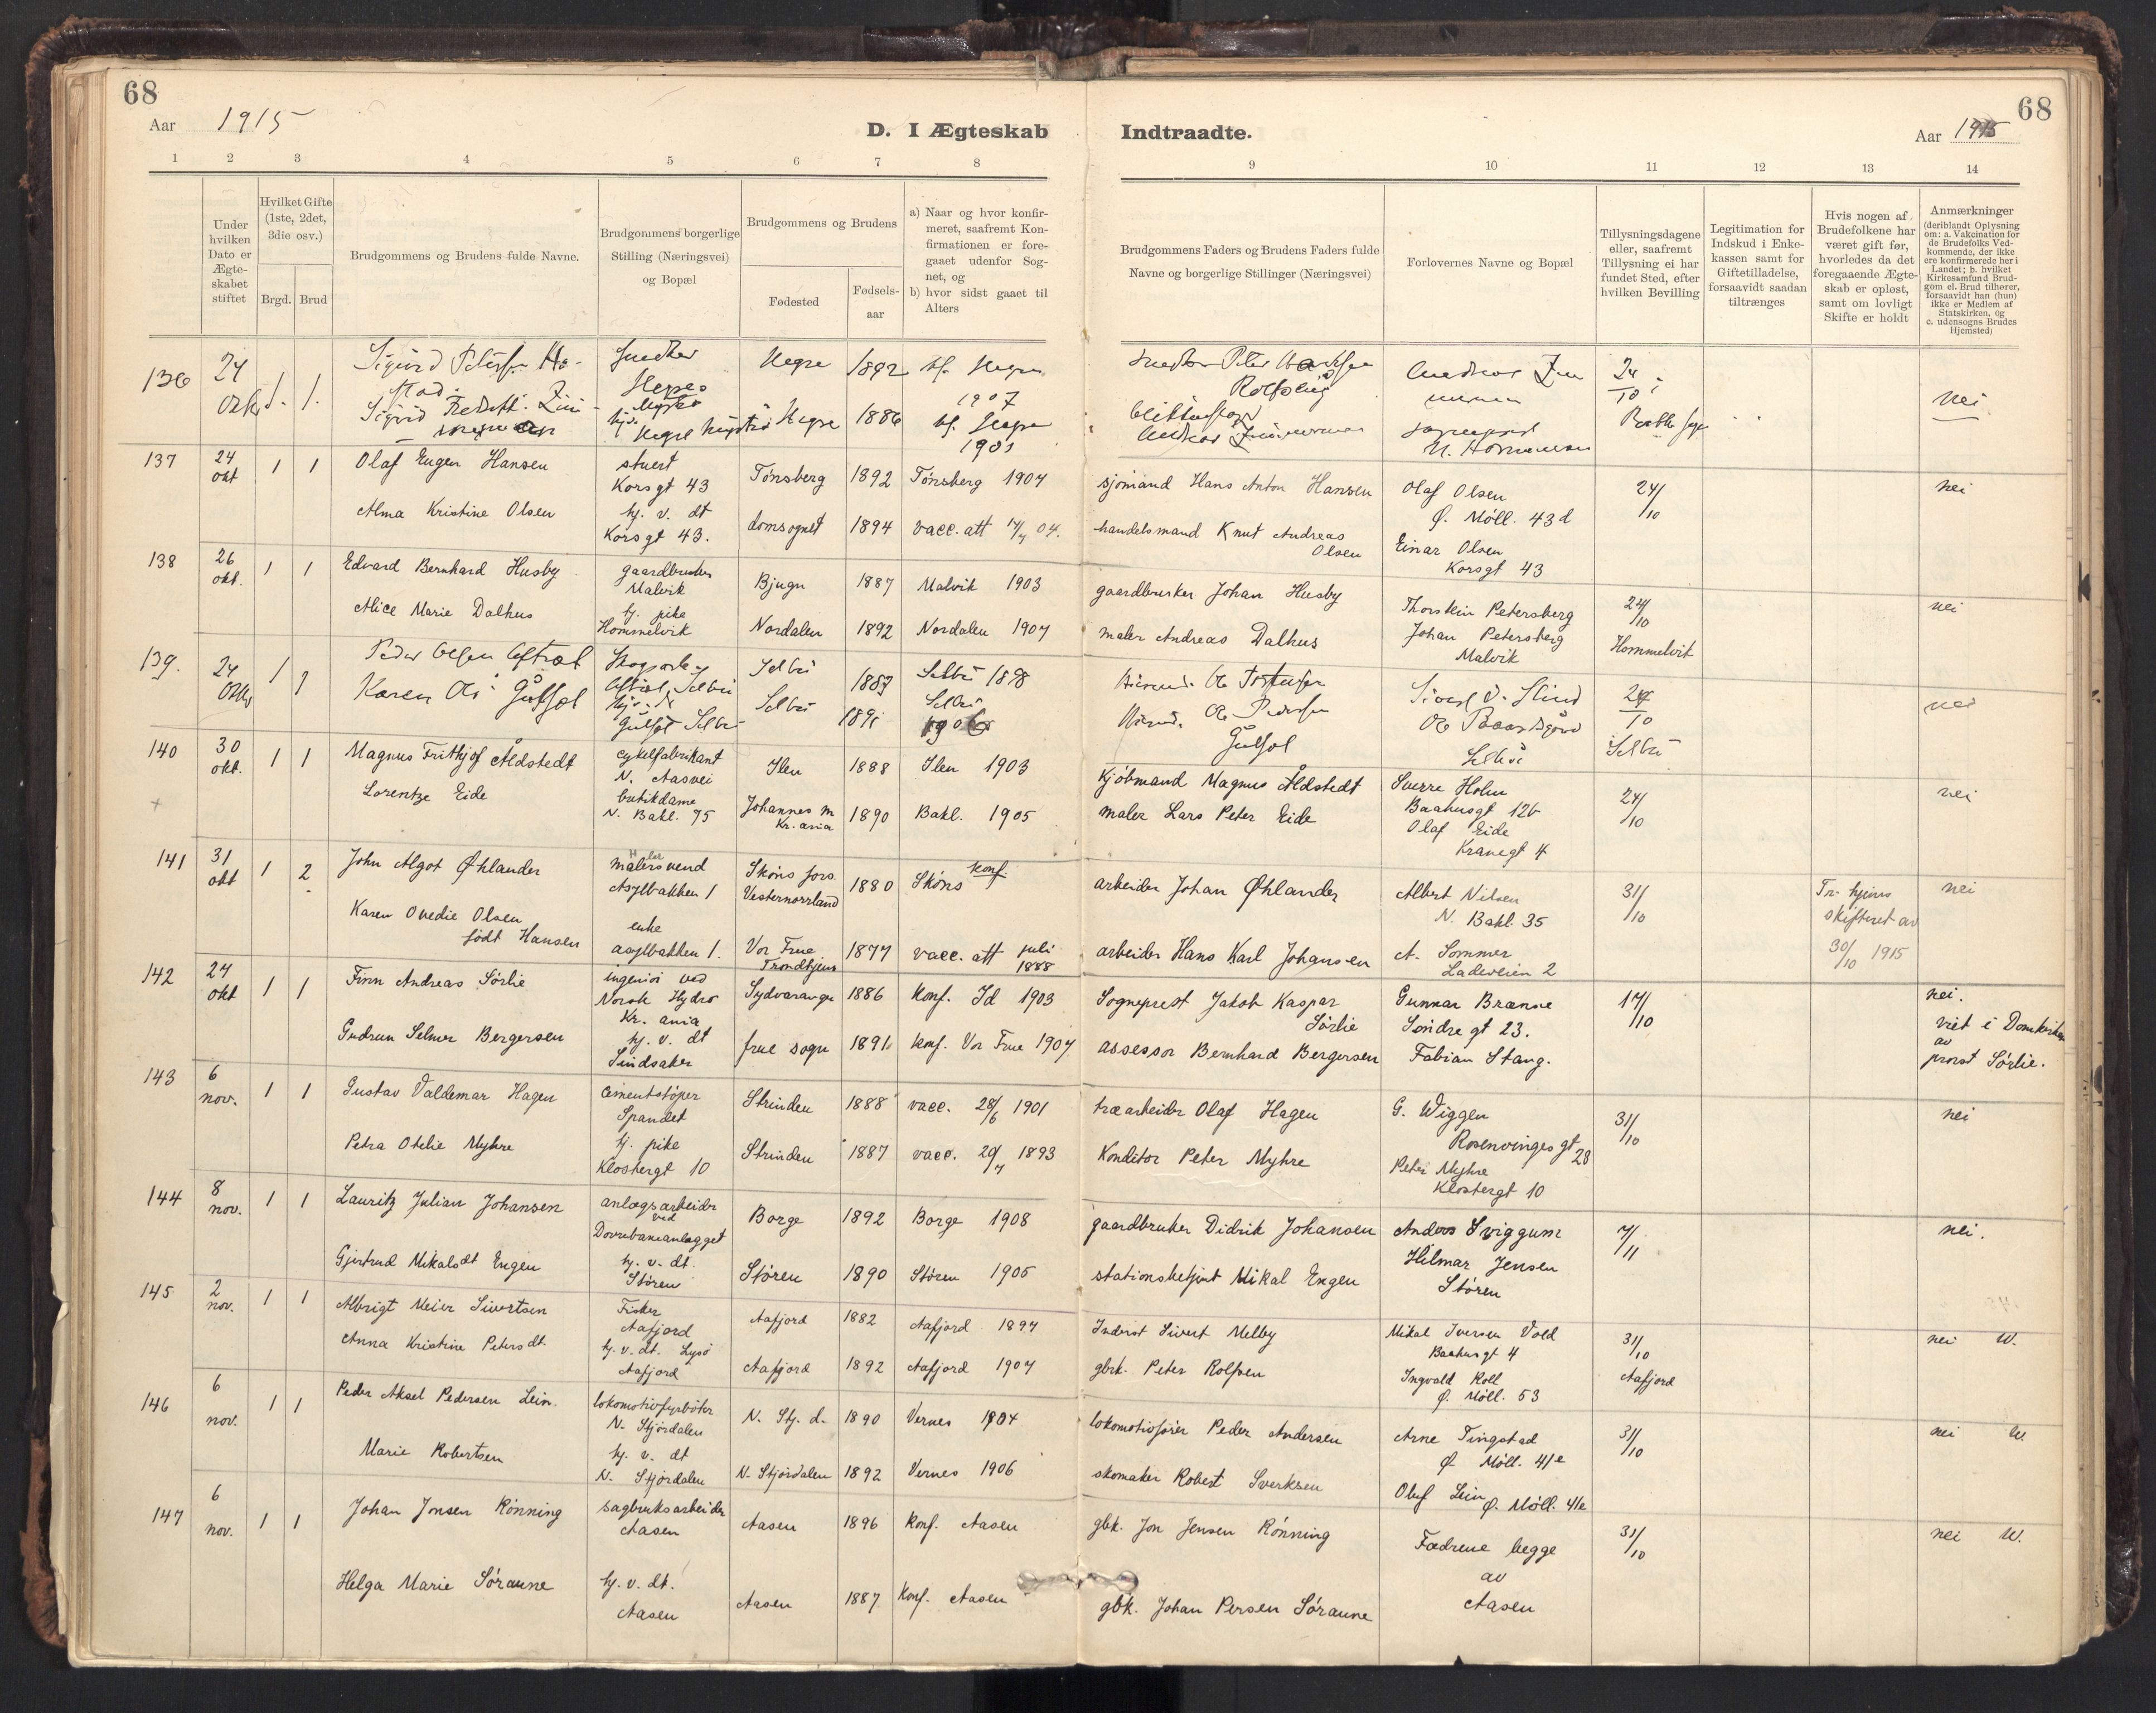 68
Aar 1915
D. I Ægteskab
Indtraadte.
68
Aar 1915
1 2 3 4 5 6 7 8 9 10 11 12 13 14
Under hvilken Dato er Ægte-skabet stiftet
Hvilket Gifte (1ste, 2det, 3die osv.)
Brgd. Brud
Brudgommens og Brudens fulde Navne.
Brudgommens borgerlige Stilling (Næringsvei) og Bopæl
Brudgommens og Brudens
Fødested
Fødsels-aar
a) Naar og hvor konfir-meret, saafremt Kon-firmationen er fore-gaaet udenfor Sog-net, og
b) hvor sidst gaaet til Alters
Brudgommens Faders og Brudens Faders fulde
Navne og borgerlige Stillinger (Næringsvei)
Forlovernes Navne og Bopæl
Tillysningsdagene eller, saafremt Tillysning ei har fundet Sted, efter hvilken Bevilling
Legitimation for Indskud i Enke-kassen samt for Giftetilladelse, forsaavidt saadan tiltrænges
Hvis nogen af Brudefolkene har været gift før, hvorledes da det foregaaende Ægte-skab er opløst, samt om lovligt Skifte er holdt
Anmærkninger (deriblandt Oplysning om: a. Vakcination for de Brudefolks Ved-kommende, der ikke ere konfirmerede her i Landet; b. hvilket Kirkesamfund Brud-gom el. Brud tilhører, forsaavidt han (hun) ikke er Medlem af Statskirken, og c. udensogns Brudes Hjemsted)
136 24 1. 1. Sigurd Hegre 1892 Hegre 1907 24/10 nei
Sigrid Hegre 1886 1901
137 24 okt 1 1 Olaf Eugen Hansen stuert Korsgt 43 Tønsberg 1892 Tønsberg 1907 sjømand Hans Anton Hansen Olaf Olsen Ø. Møll. 43d 24/10 nei
Alma Kristine Olsen hj. v. dt Korsgt 43. domsognet 1894 vacc. att 04. handelsmand Knut Andreas Olsen Einar Olsen Korsgt 43
138 26 okt. 1 1 Edvard Bernhard Husby gaardbruker Malvik Bjugn 1887 Malvik 1903 gaardbruker Johan Husby Thorstein Petersberg 24/10 nei
Alice Marie Dalhus hj. pike Hommelvik Nordalen 1892 Nordalen 1907 maler Andreas Dalhus Johan Petersberg Malvik Hommelvik
139. 24 1 1 Peder Olsen Selbu Selbu 1898 24/10 nei
Karen Selbu Selbu 1891 Selbu 1906 Selbu Selbu
140 30 okt. 1 1 Magnus Frithjof Åldstedt cykelfabrikant N. Aasvei Ilen 1888 Ilen 1903 kjøbmand Magnus Åldstedt Sverre Holm Baahusgt 12b 24/10 nei
Lorentze Eide butikdame N. Bakl. 95 Johannes m Kr.ania 1890 Bakl. 1905 maler Lars Peter Eide Olaf Eide Kranegt 4
141 31 okt 1 2 John Algot Øhlander malersvend Asylbakken 1 Sköns fors. Vesternorrland 1880 Sköns konf. arbeider Johan Øhlander Albert Nilsen N. Bakl. 35 31/10 Tr.hjems skifteret av 30/10 1915 nei
Karen Ovedie Olsen født Hansen enke asylbakken 1. Vor Frue Trondhjem 1877 vacc. att juli 1888 arbeider Hans Karl Johansen A. Sommer Ladeveien 2
142 24 okt 1 1 Finn Andreas Sørlie ingeniør ved Norsk Hydro Kr. ania Sydvaranger 1886 konf. Id 1903 Sogneprest Jakob Kaspar Sørlie Gunnar Brænne Søndre gt 23. 17/10 nei.
Gudrun Selmer Bergersen hj. v. dt Sindsaker frue sogn 1891 konf. Vor Frue 1907 assessor Bernhard Bergersen Fabian Stang. viet i Domkirken av prost Sørlie.
143 6 nov. 1 1 Gustav Valdemar Hagen cementstøper Spandet Strinden 1888 vacc. 28/6 1901 træarbeider Olaf Hagen G. Wiggen Rosenvinges gt 28 31/10 nei
Petra Otelie Myhre hj. pike Klostergt 10 Strinden 1887 vacc. 29/7 1893 Konditor Peter Myhre Peter Myhre Klostergt 10
144 8 nov. 1 1 Lauritz Julian Johansen anlægsarbeider ved Dovrebaneanlægget Borge 1892 Borge 1908 gaardbruker Didrik Johansen Anders Sviggum 7/11 nei.
Gjertrud Mikalsdt Engen hj. v. dt. Støren Støren 1890 Støren 1905 stationsbetjent Mikal Engen Hilmar Jensen Støren
145 2 nov. 1 1 Albrigt Meier Sivertsen Fisker Aafjord Aafjord 1882 Aafjord 1897 Inderst Sivert Melby Mikal Iversen Vold Baahusgt 4 31/10 nei W.
Anna Kristine Petersdt. hj. v. dt. Lysø Aafjord Aafjord 1892 Aafjord 1907 gbrk. Peter Rolfsen Ingvald Koll Ø. Møll. 53 Aafjord
146 6 nov. 1 1 Peder Aksel Pedersen Lein. lokomotivfyrbøter N. Stjørdalen N. Stj. d. 1890 Vernes 1904 lokomotivfører Peder Andersen Arne Tingstad Ø. Møll. 41e 31/10 nei W.
Marie Robertsen hj. v. dt N. Stjørdalen N. Stjørdalen 1892 Vernes 1906 skomaker Robert Sverksen Oluf Lein Ø. Møll. 41e
147 6 nov. 1 1 Johan Jonsen Rønning sagbruksarbeider Aasen Aasen 1896 Konf. Aasen gbk. Jon Jensen Rønning Fædrene begge av Aasen 31/10 nei W.
Helga Marie Søraune hj. v. dt. Aasen Aasen 1887 Konf. Aasen gbk. Johan Persen Søraune